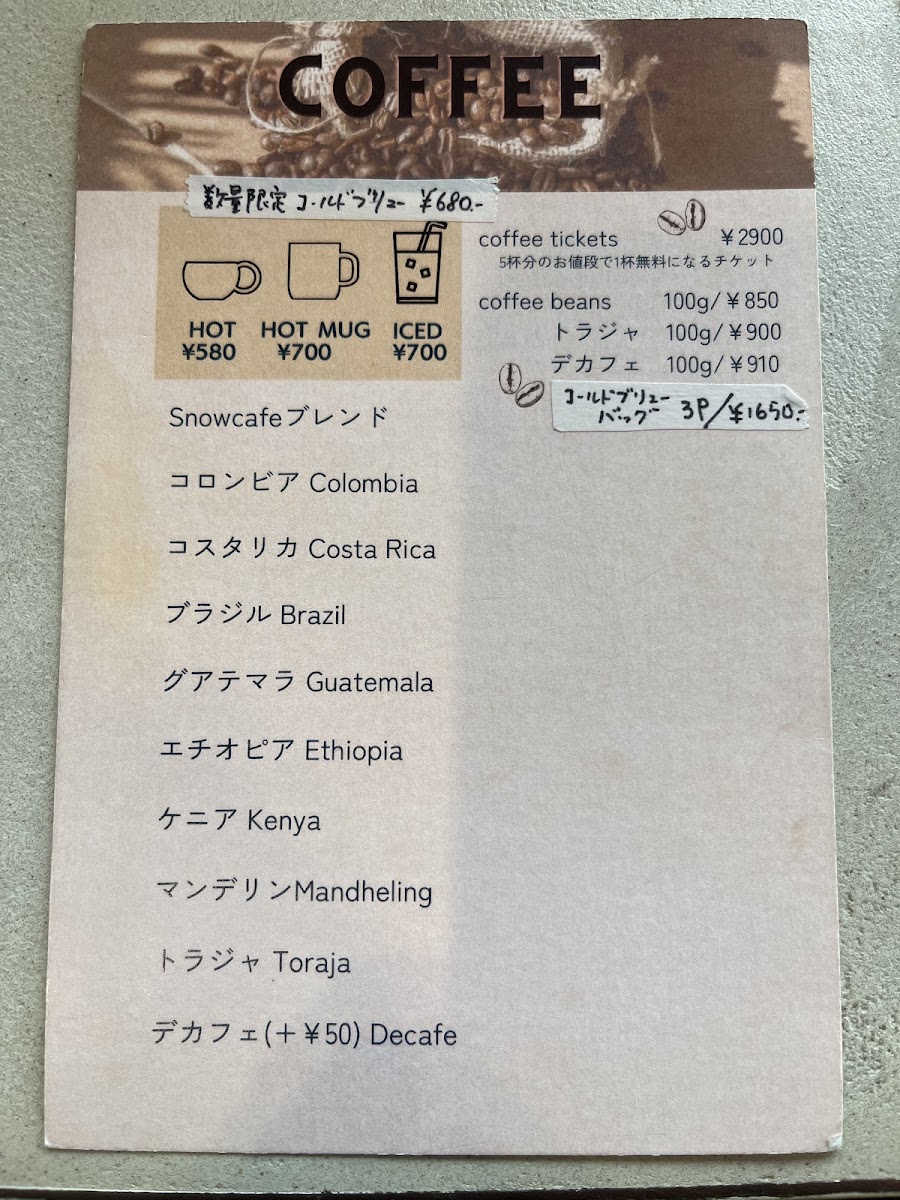 COFFEE
数量限定 コールドブリュー ¥680.-
HOT
¥580
HOT MUG
¥700
ICED
¥700
coffee tickets ¥2900
5杯分のお値段で1杯無料になるチケット
coffee beans 100g/¥850
トラジャ 100g/¥900
デカフェ 100g/¥910
コールドブリュー
バッグ 3P/¥1650.-
Snowcafeブレンド
コロンビア Colombia
コスタリカ Costa Rica
ブラジル Brazil
グアテマラ Guatemala
エチオピア Ethiopia
ケニア Kenya
マンデリンMandheling
トラジャ Toraja
デカフェ(+¥50) Decafe